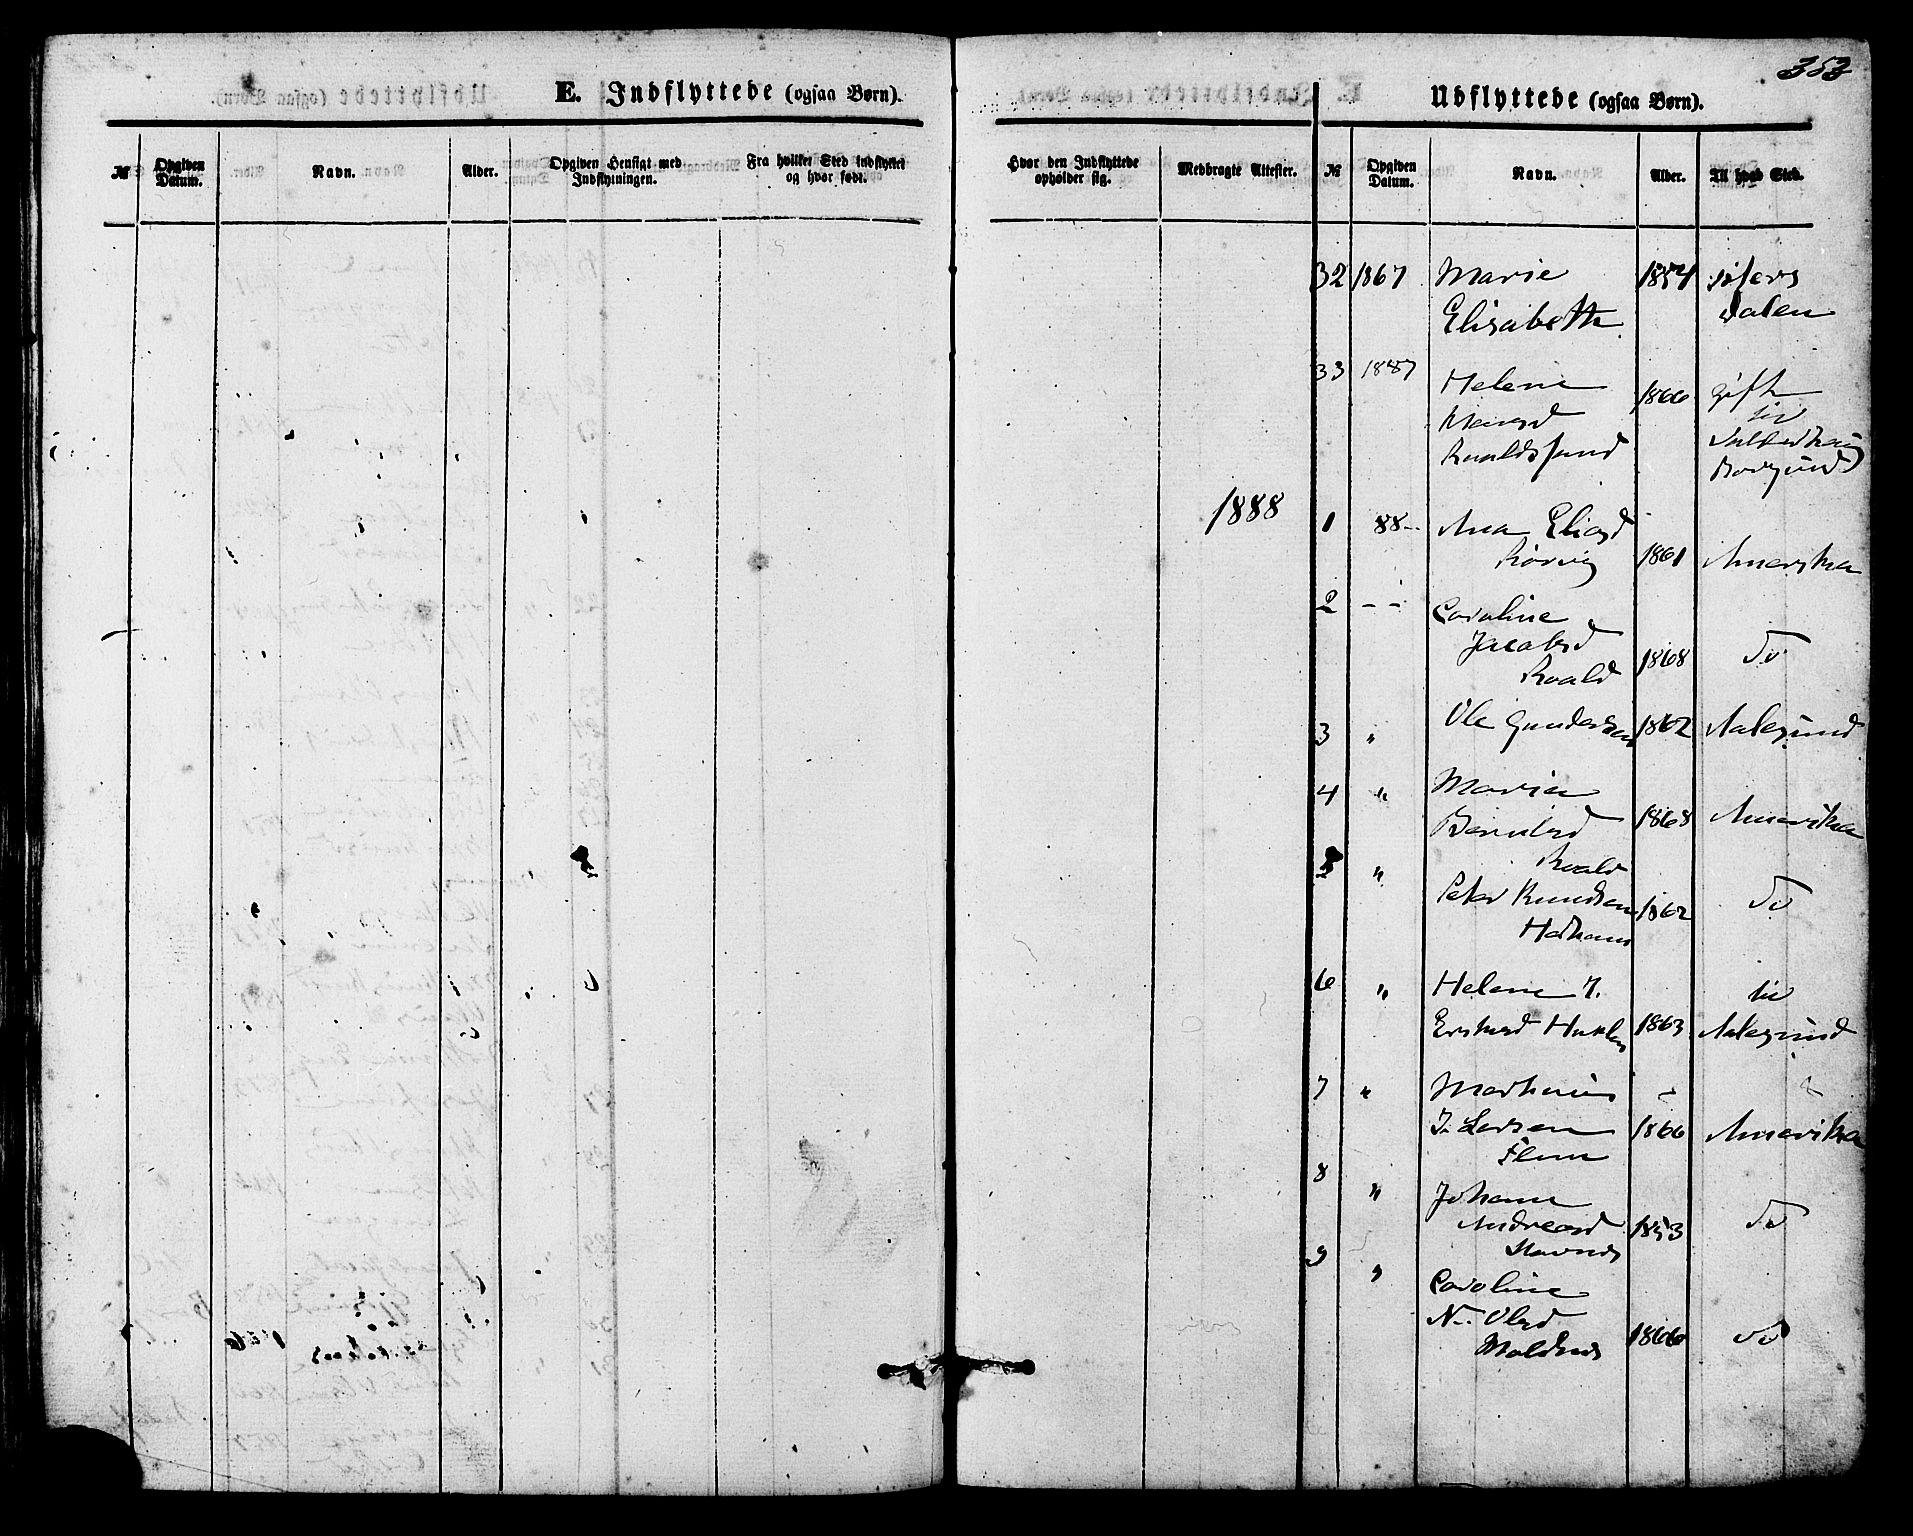 353
E. Indflyttede (ogsaa Børn).
Udflyttede (ogsaa Børn).
№
Opgiven Datum.
Navn.
Alder.
Opgiven Hensigt med Indflytningen.
Fra hvilket Sted indflyttet og hvor født.
Hvor den Indflyttede opholder sig.
Medbragte Attester.
№
Opgiven Datum.
Navn.
Alder.
Til hvad Sted.
32 1867 Marie 1854
Elisabeth dalen
33 1887 Helene 1866 gift
til
1888
1 88 Ana Eliasd
Rørvig 1861 Amerika
2 - - Caroline
Jacobsd
Roald 1868 do
3 " Ole Gundersen 1862 Aalesund
4 " Marie
Berntsd 1868 Amerika
Roald
5 " Peter Knudsen 1862 do
6 " Helene til
1863 Aalesund
7 " Marthinus
Larsen 1866 Amerika
Flem
8 " Johanne
Andreasd 1853 do
9 " Caroline
N. Olsd
1866 do